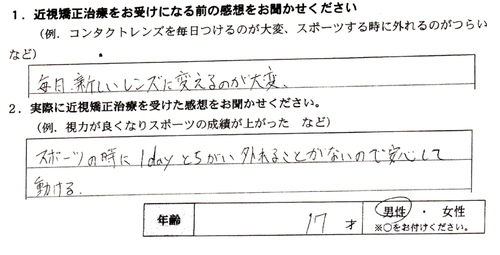 1．近視矯正治療をお受けになる前の感想をお聞かせください
（例．コンタクトレンズを毎日つけるのが大変、スポーツする時に外れるのがつらい
など）
毎日、新しいレンズに変えるのが大変、
2．実際に近視矯正治療を受けた感想をお聞かせください。
（例．視力が良くなりスポーツの成績が上がった　など）
スポーツの時に1dayと5がい外れることがないので安心して
動ける.
年齢　17　才　男性　・　女性
※○をお付けください。